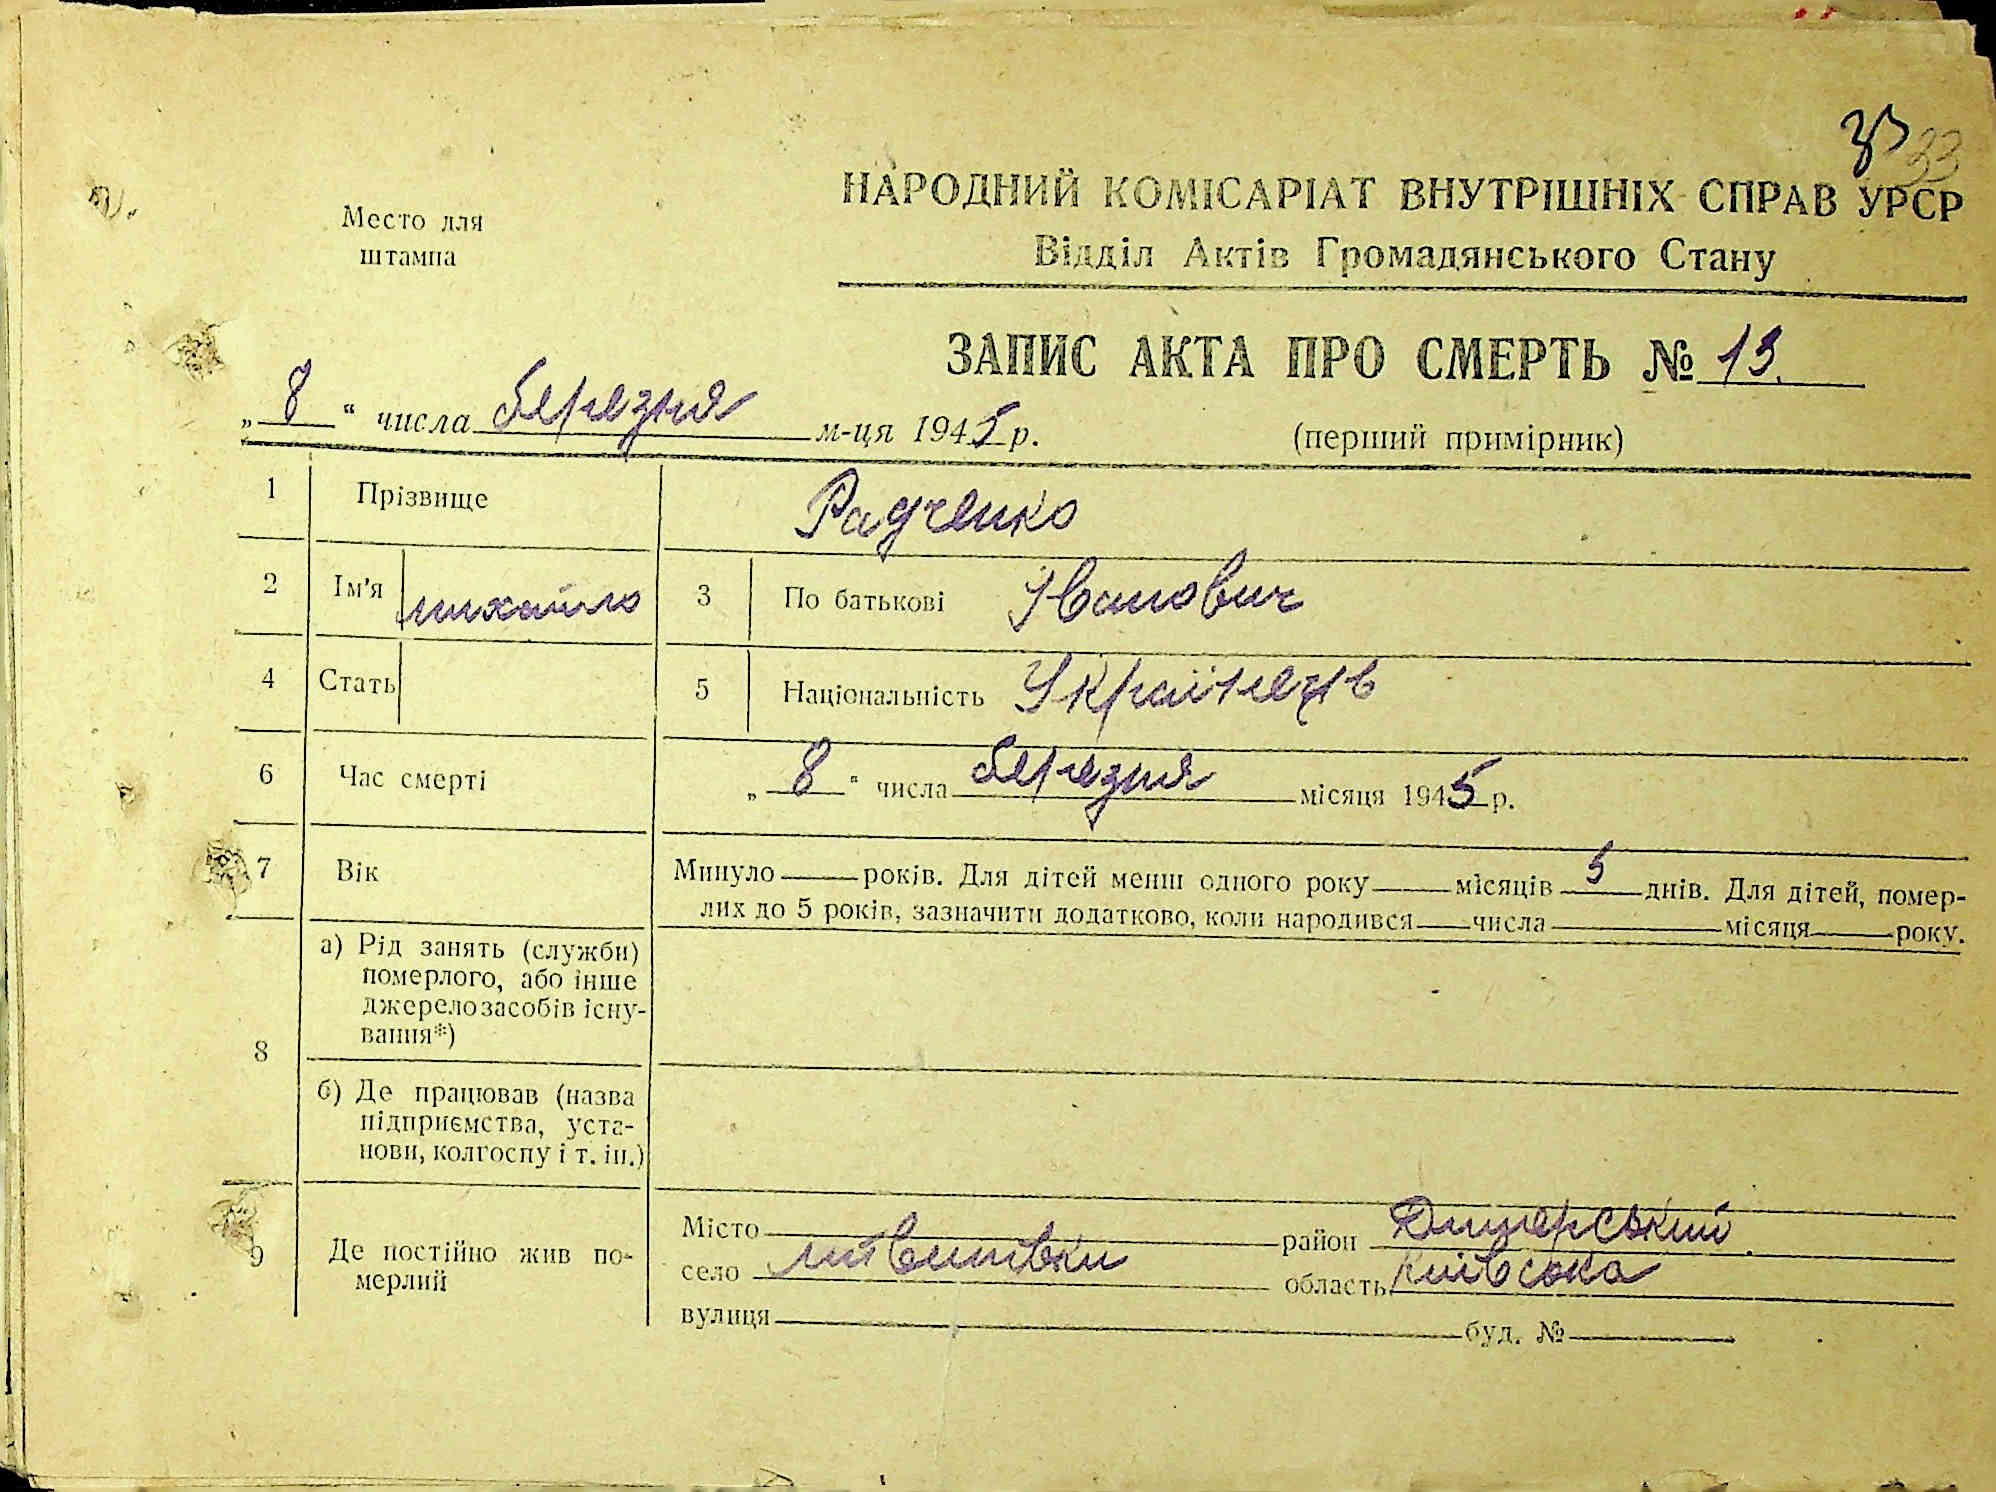 33 33
Место для
штампа
НАРОДНИЙ КОМІСАРІАТ ВНУТРІШНІХ СПРАВ УРСР
Відділ Актів Громадянського Стану
ЗАПИС АКТА ПРО СМЕРТЬ № 13.
„ 8 “ числа березня м-ця 1945 р.
(перший примірник)
1 Прізвище Радченко
2 Ім'я михайло 3 По батькові Іванович
4 Стать 5 Національність Українець
6 Час смерті „ 8 “ числа березня місяця 1945 р.
7 Вік Минуло ___ років. Для дітей менш одного року ___ місяців 5 днів. Для дітей, помер-
лих до 5 років, зазначити додатково, коли народився ___ числа ___ місяця ___ року.
8 а) Рід занять (служби)
померлого, або інше
джерело засобів існу-
вання*)
б) Де працював (назва
підприємства, уста-
нови, колгоспу і т. ін.)
9 Де постійно жив по-
мерлий
Місто ___ район Димерський
село литвинівки область Київська
вулиця ___ буд. № ___